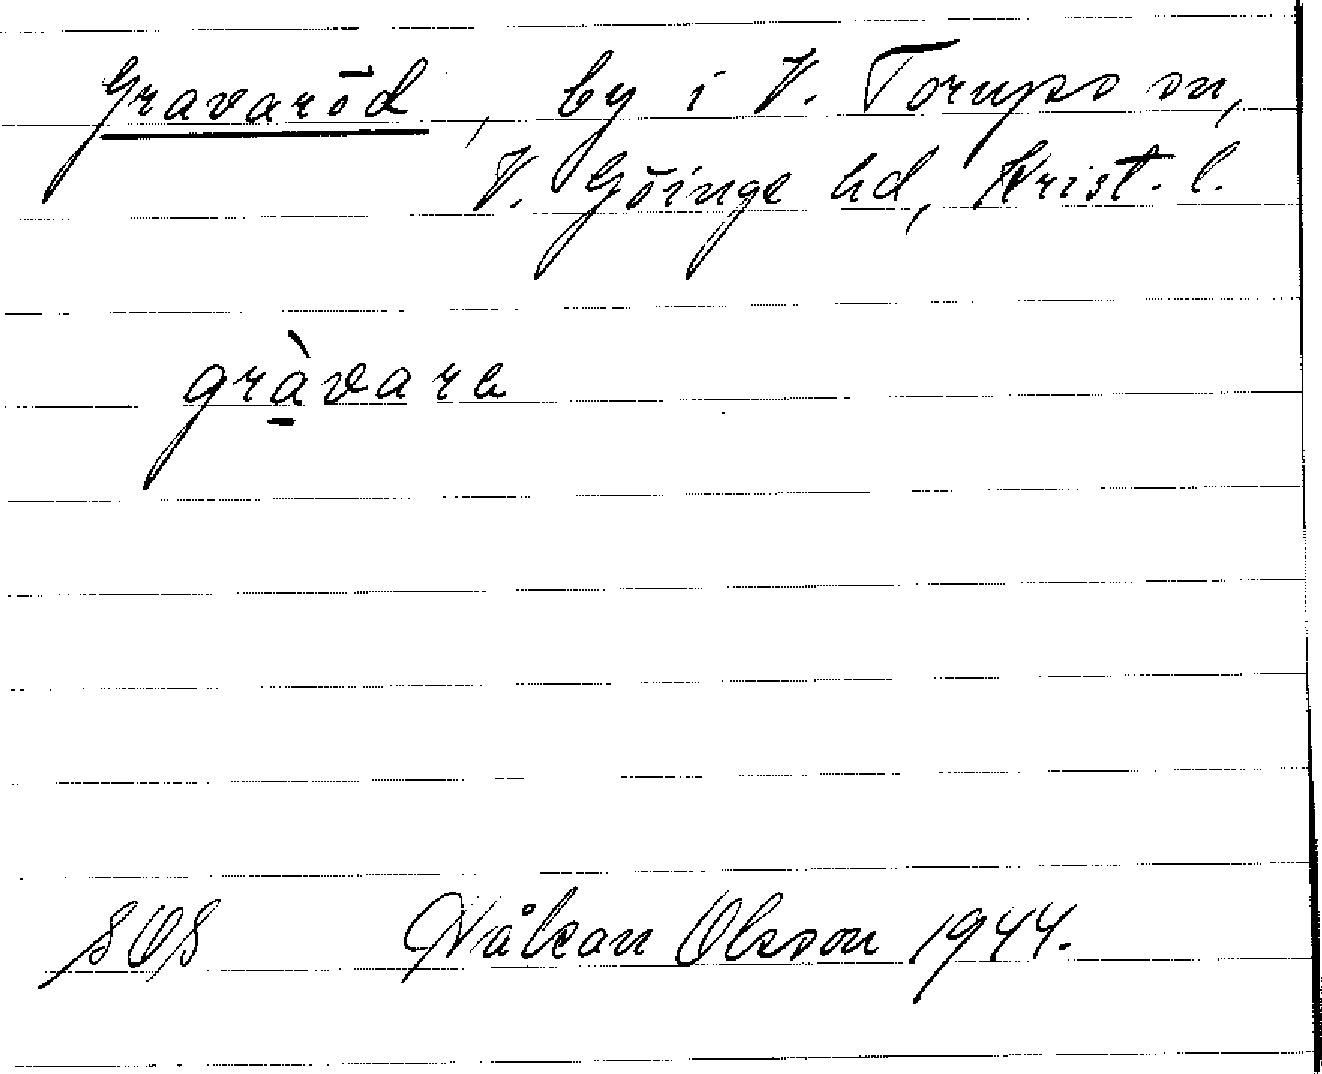 Gravaröd, by i V. Torups sn,
V. Göinge hd, Krist. l.
gràvara
SOS Håkan Olsson 1944.